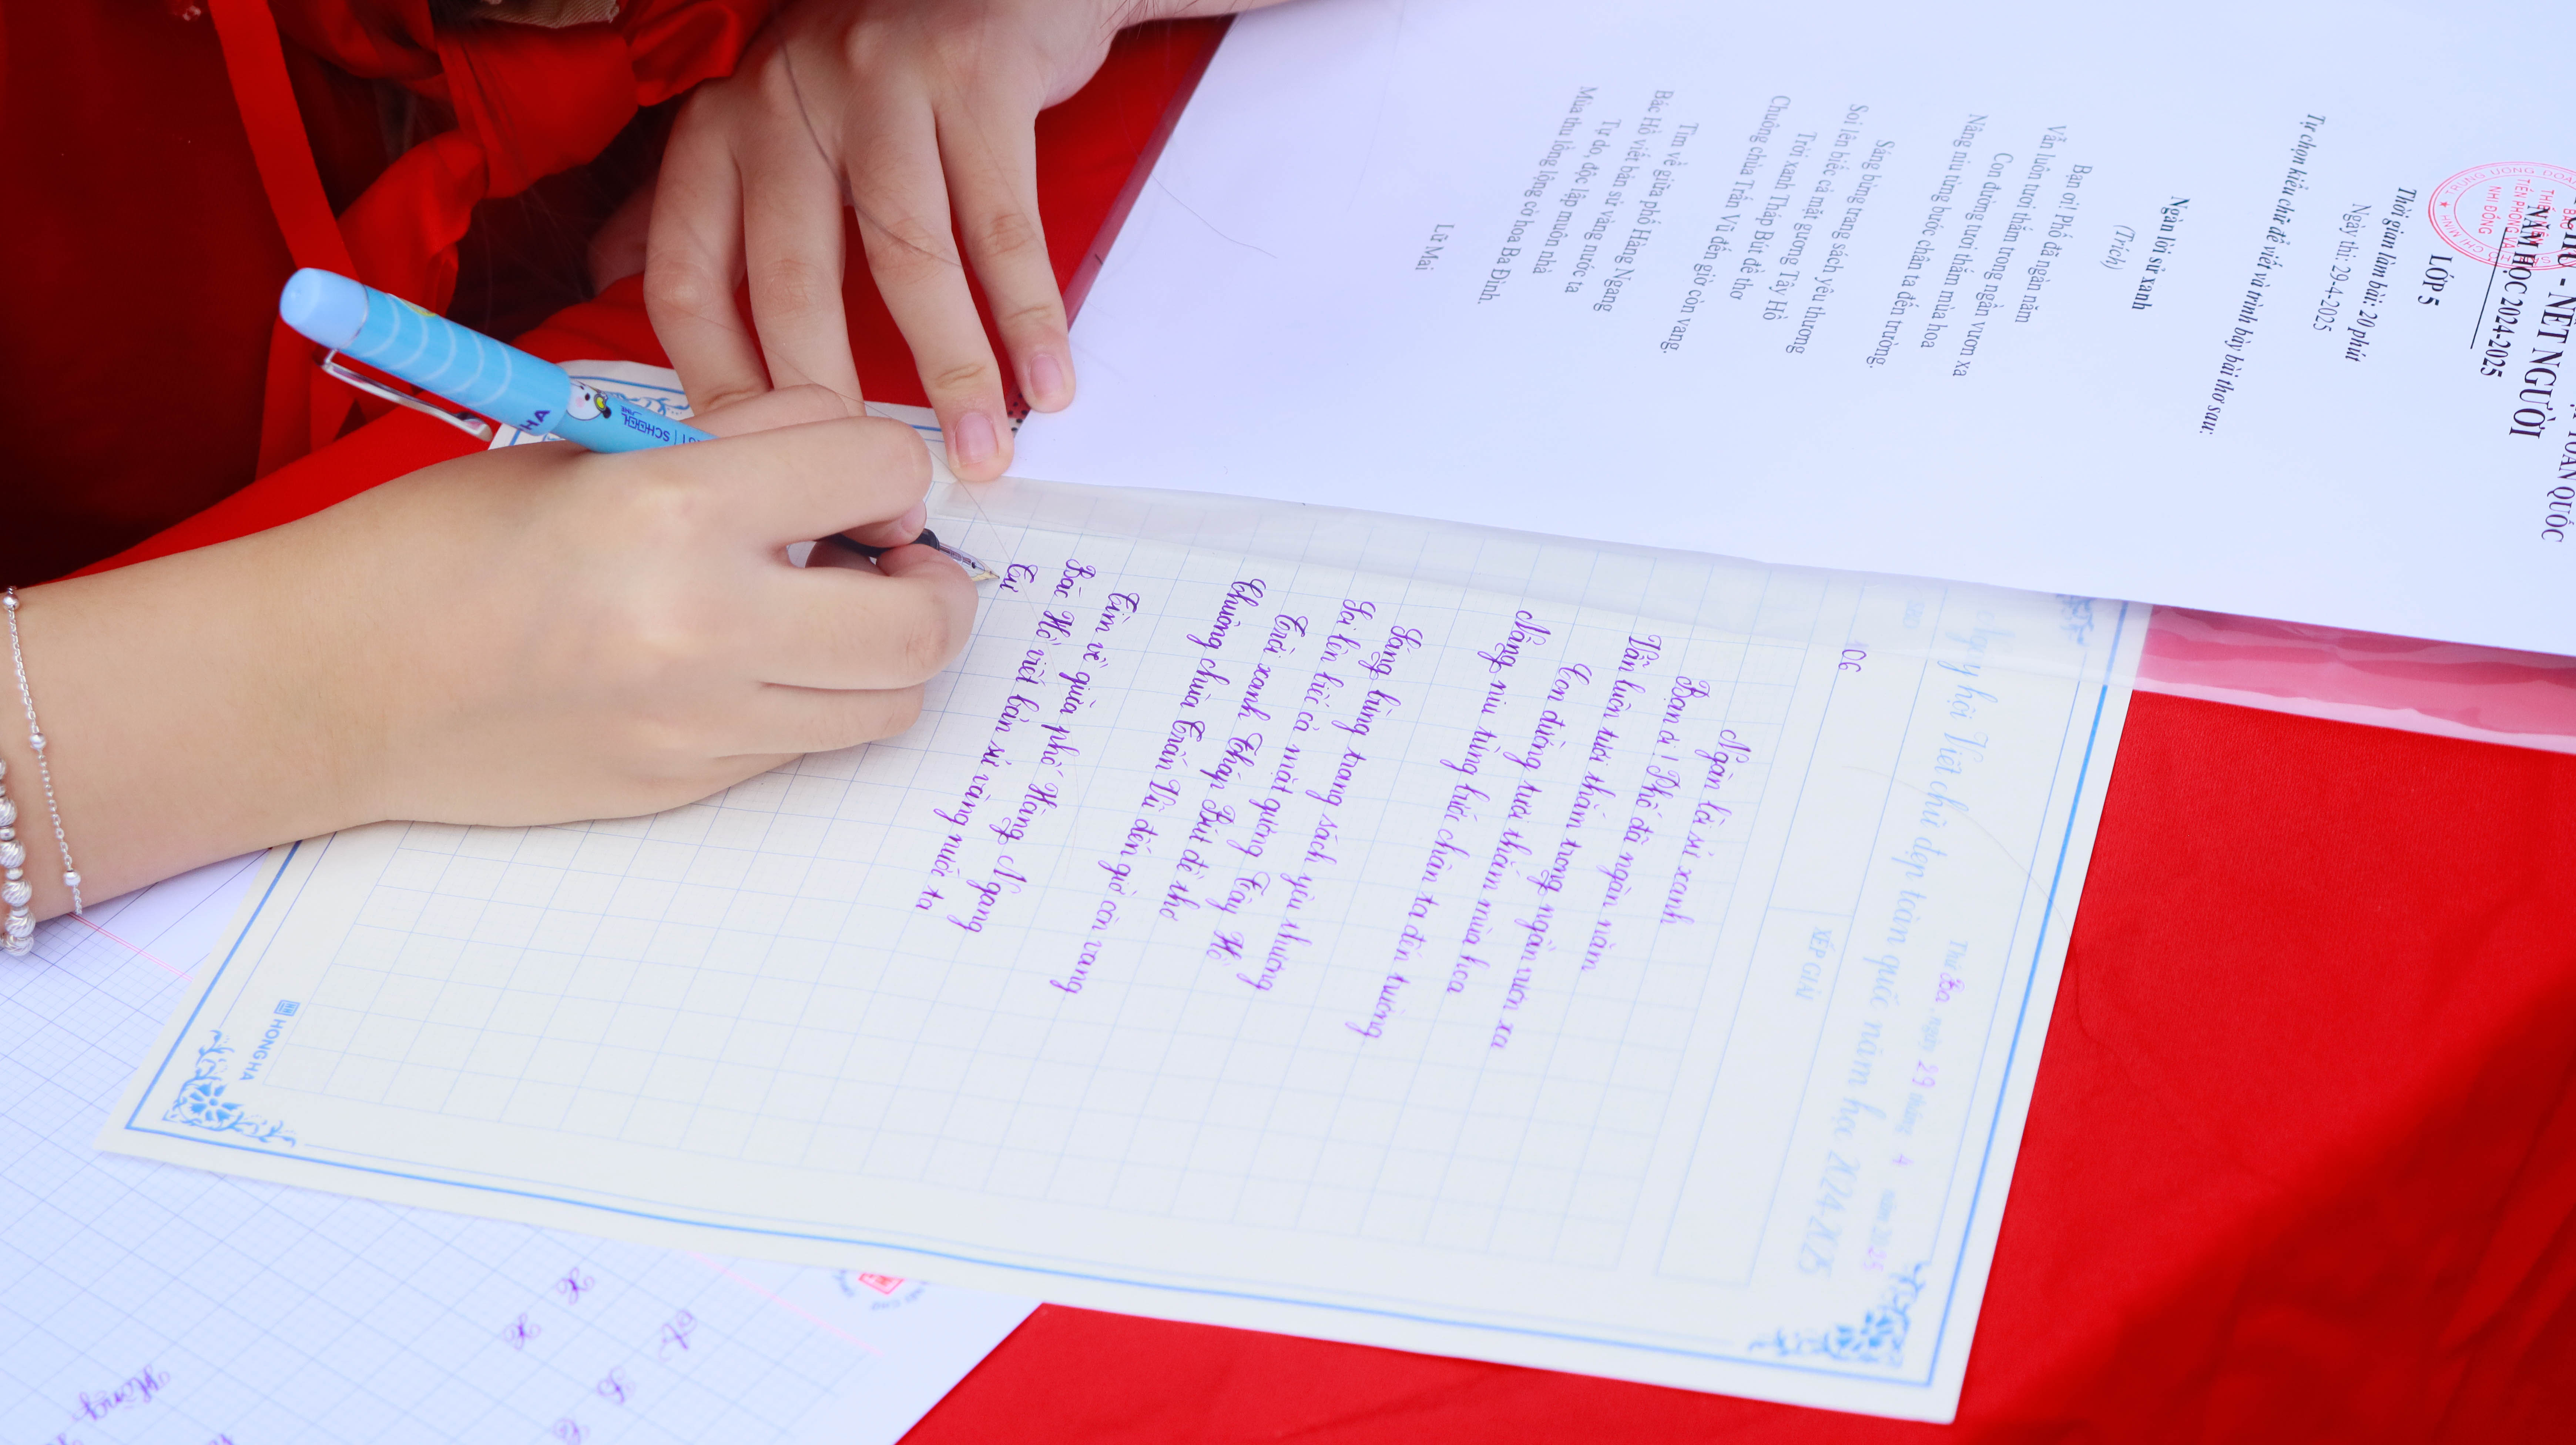 TOÀN QUỐC
- NÉT NGƯỜI
NĂM HỌC 2024-2025
LỚP 5
Thời gian làm bài: 20 phút
Ngày thi: 29-4-2025
Tự chọn kiểu chữ để viết và trình bày bài thơ sau:
Ngàn lời sử xanh
(Trích)
Bạn ơi! Phố đã ngàn năm
Vẫn luôn tươi thắm trong ngần vươn xa
Con đường tươi thắm mùa hoa
Nâng niu từng bước chân ta đến trường.
Sáng bừng trang sách yêu thương
Soi lên biếc cả mặt gương Tây Hồ
Trời xanh Tháp Bút đề thơ
Chuông chùa Trấn Vũ đến giờ còn vang.
Tìm về giữa phố Hàng Ngang
Bác Hồ viết bản sử vàng nước ta
Tự do, độc lập muôn nhà
Mùa thu lồng lộng cờ hoa Ba Đình.
Lữ Mai
TRUNG ƯƠNG ĐOÀN
TIỀN PHONG VÀ
NHI ĐỒNG
CHÍ MINH
Thứ Ba, ngày 29 tháng 4 năm 2025
hội Viết chữ đẹp toàn quốc năm học 2024-2025
SBD
06
XẾP GIẢI
Ngàn lời sử xanh
Bạn ơi! Phố đã ngàn năm
Vẫn luôn tươi thắm trong ngần vươn xa
Con đường tươi thắm mùa hoa
Nâng niu từng bước chân ta đến trường
Sáng bừng trang sách yêu thương
Soi lên biếc cả mặt gương Tây Hồ
Trời xanh Tháp Bút đề thơ
Chuông chùa Trấn Vũ đến giờ còn vang
Tìm về giữa phố Hàng Ngang
Bác Hồ viết bản sử vàng nước ta
Tự
HONGHA
HA
SCHOOL
Hồng